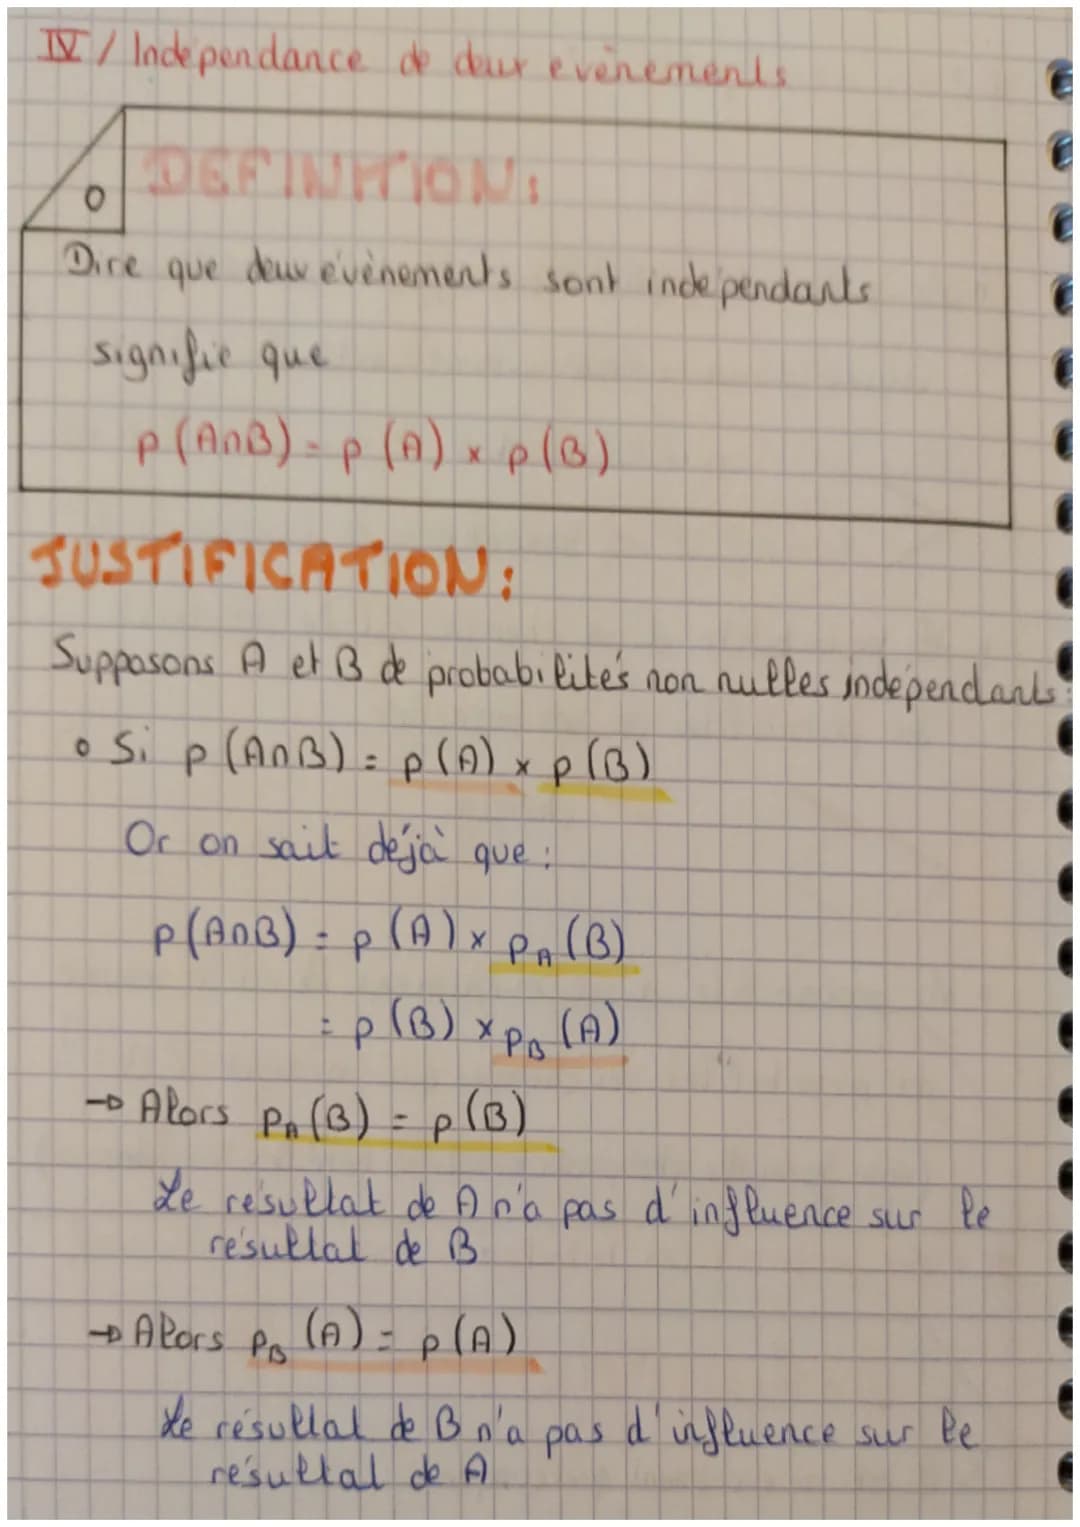 IV / Indépendance de deux évènements
DEFINITION:
Dire que deux évènements sont indépendants
signifie que
p(A∩B) = p(A) × p(B)
JUSTIFICATION:
Supposons A et B de probabilités non nulles indépendants:
• Si p(A∩B) = p(A) × p(B)
Or on sait déjà que :
p(A∩B) = p(A) × p_A(B)
= p(B) × p_B(A)
→ Alors p_A(B) = p(B)
Le résultat de A n'a pas d'influence sur le
résultat de B
→ Alors p_B(A) = p(A)
Le résultat de B n'a pas d'influence sur le
résultat de A